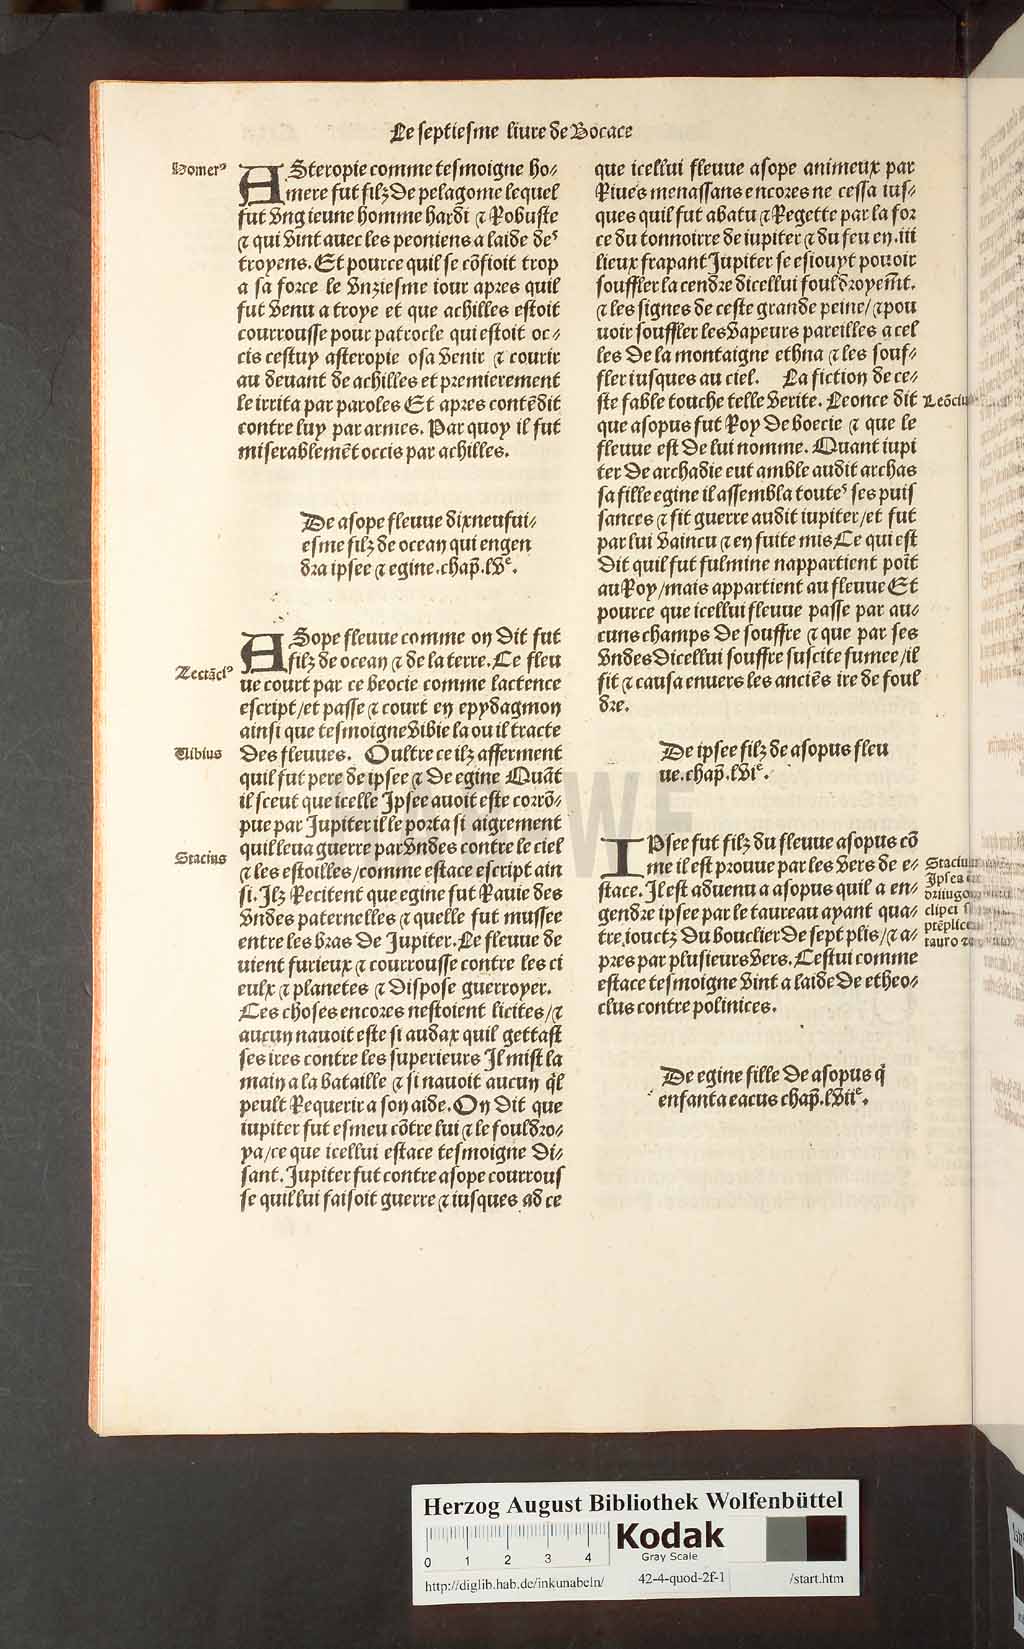 Le septiesme liure de Bocace
Homer⁹
ASteropie comme tesmoigne ho⸗
mere fut filz de pelagome lequel
fut vng ieune homme hardi ⁊ Robuste
⁊ qui vint auec les peoniens a laide des
troyens. Et pource quil se cõfioit trop
a sa force le vnziesme iour apres quil
fut venu a troye et que achilles estoit
courrousse pour patrocle qui estoit oc⸗
cis cestuy asteropie osa venir ⁊ courir
au deuant de achilles et premierement
le irrita par paroles Et apres contẽdit
contre luy par armes. Par quoy il fut
miserablemẽt occis par achilles.
De asope fleuue dixneufui⸗
esme filz de ocean qui engen
dra ipsee ⁊ egine. chap̃. lvᵉ.
ASope fleuue comme on dit fut
filz de ocean ⁊ de la terre. Ce fleu
Lectãci⁹
ue court par ce beocie comme lactence
escript/et passe ⁊ court en epydagmon
ainsi que tesmoigne vibie la ou il tracte
Uibius
des fleuues. Oultre ce ilz afferment
quil fut pere de ipsee ⁊ de egine Quãt
il sceut que icelle Ipsee auoit este corrõ⸗
pue par Jupiter il le porta si aigrement
Stacius
quil leua guerre par vndes contre le ciel
⁊ les estoilles/comme estace escript ain
si. Ilz Recitent que egine fut Rauie des
vndes paternelles ⁊ quelle fut mussee
entre les bras de Jupiter. Le fleuue de
uient furieux ⁊ courrousse contre les ci
eulx ⁊ planetes ⁊ dispose guerroyer.
Ces choses encores nestoient licites/⁊
aucun nauoit este si audax quil gettast
ses ires contre les superieurs Il mist la
main a la bataille ⁊ si nauoit aucun q̃l
peult Requerir a son aide. On dit que
iupiter fut esmeu cõtre lui ⁊ le fouldro⸗
ya/ce que icellui estace tesmoigne di⸗
sant. Jupiter fut contre asope courrous
se quil lui faisoit guerre ⁊ iusques ad ce
que icellui fleuue asope animeux par
Riues menassans encores ne cessa ius⸗
ques quil fut abatu ⁊ Regette par la for
ce du tonnoirre de iupiter ⁊ du feu en .iii
lieux frapant Jupiter se esiouyt pouoir
souffler la cendre dicellui fouldroyem̃t.
⁊ les signes de ceste grande peine/⁊ pou
uoir souffler les vapeurs pareilles a cel
les de la montaigne ethna ⁊ les souf⸗
fler iusques au ciel. La fiction de ce⸗
ste fable touche telle verite. Leonce dit
Leõciu
que asopus fut Roy de boecie ⁊ que le
fleuue est de lui nomme. Quant iupi
ter de archadie eut amble audit archas
sa fille egine il assembla toutes ses puis
sances ⁊ fit guerre audit iupiter/et fut
par lui vaincu ⁊ en fuite mis Ce qui est
dit quil fut fulmine nappartient poĩt
au Roy/mais appartient au fleuue Et
pource que icellui fleuue passe par au⸗
cuns champs de souffre ⁊ que par ses
vndes dicellui souffre suscite fumee/il
fit ⁊ causa enuers les anciẽs ire de foul
dre.
De ipsee filz de asopus fleu
ue. chap̃. lviᵉ.
IPsee fut filz du fleuue asopus cõ
me il est prouue par les vers de e⸗
stace. Il est aduenu a asopus quil a en⸗
gendre ipsee par le taureau ayant qua⸗
tre iouctz du bouclier de sept plis/⁊ a⸗
pres par plusieurs vers. Cestui comme
estace tesmoigne vint a laide de etheo⸗
clus contre polinices.
Staciu
Ipsea
driiugo
clipei
ptẽplice
tauro
De egine fille de asopus q̃
enfanta eacus chap̃. lviiᵉ.
Herzog August Bibliothek Wolfenbüttel
0 1 2 3 4
Kodak
Gray Scale
http://diglib.hab.de/inkunabeln/ 42-4-quod-2f-1 /start.htm